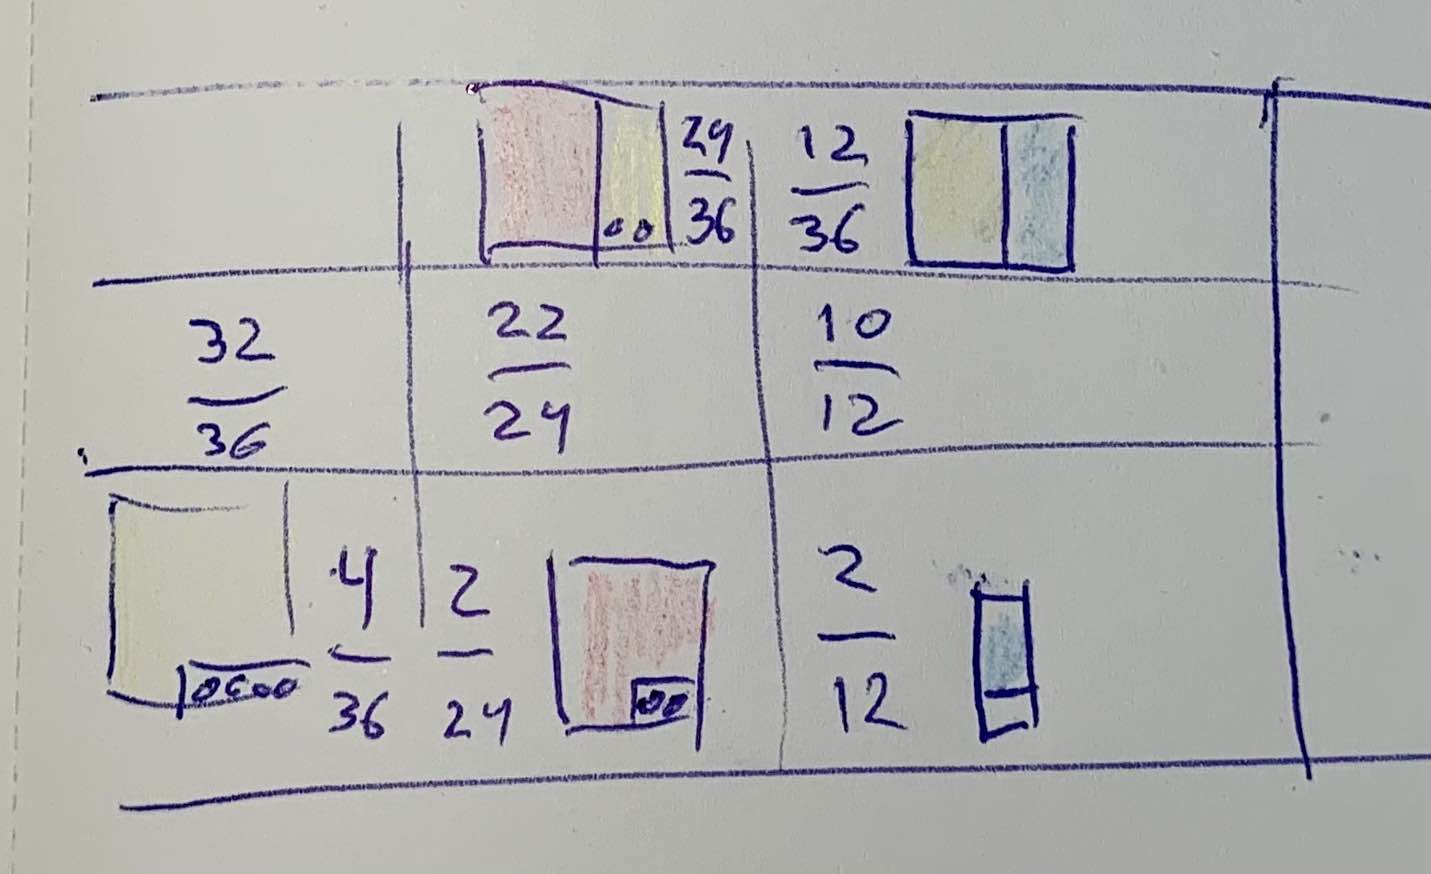 24/36 12/36
32/36 22/24 10/12
4/36 2/24 2/12